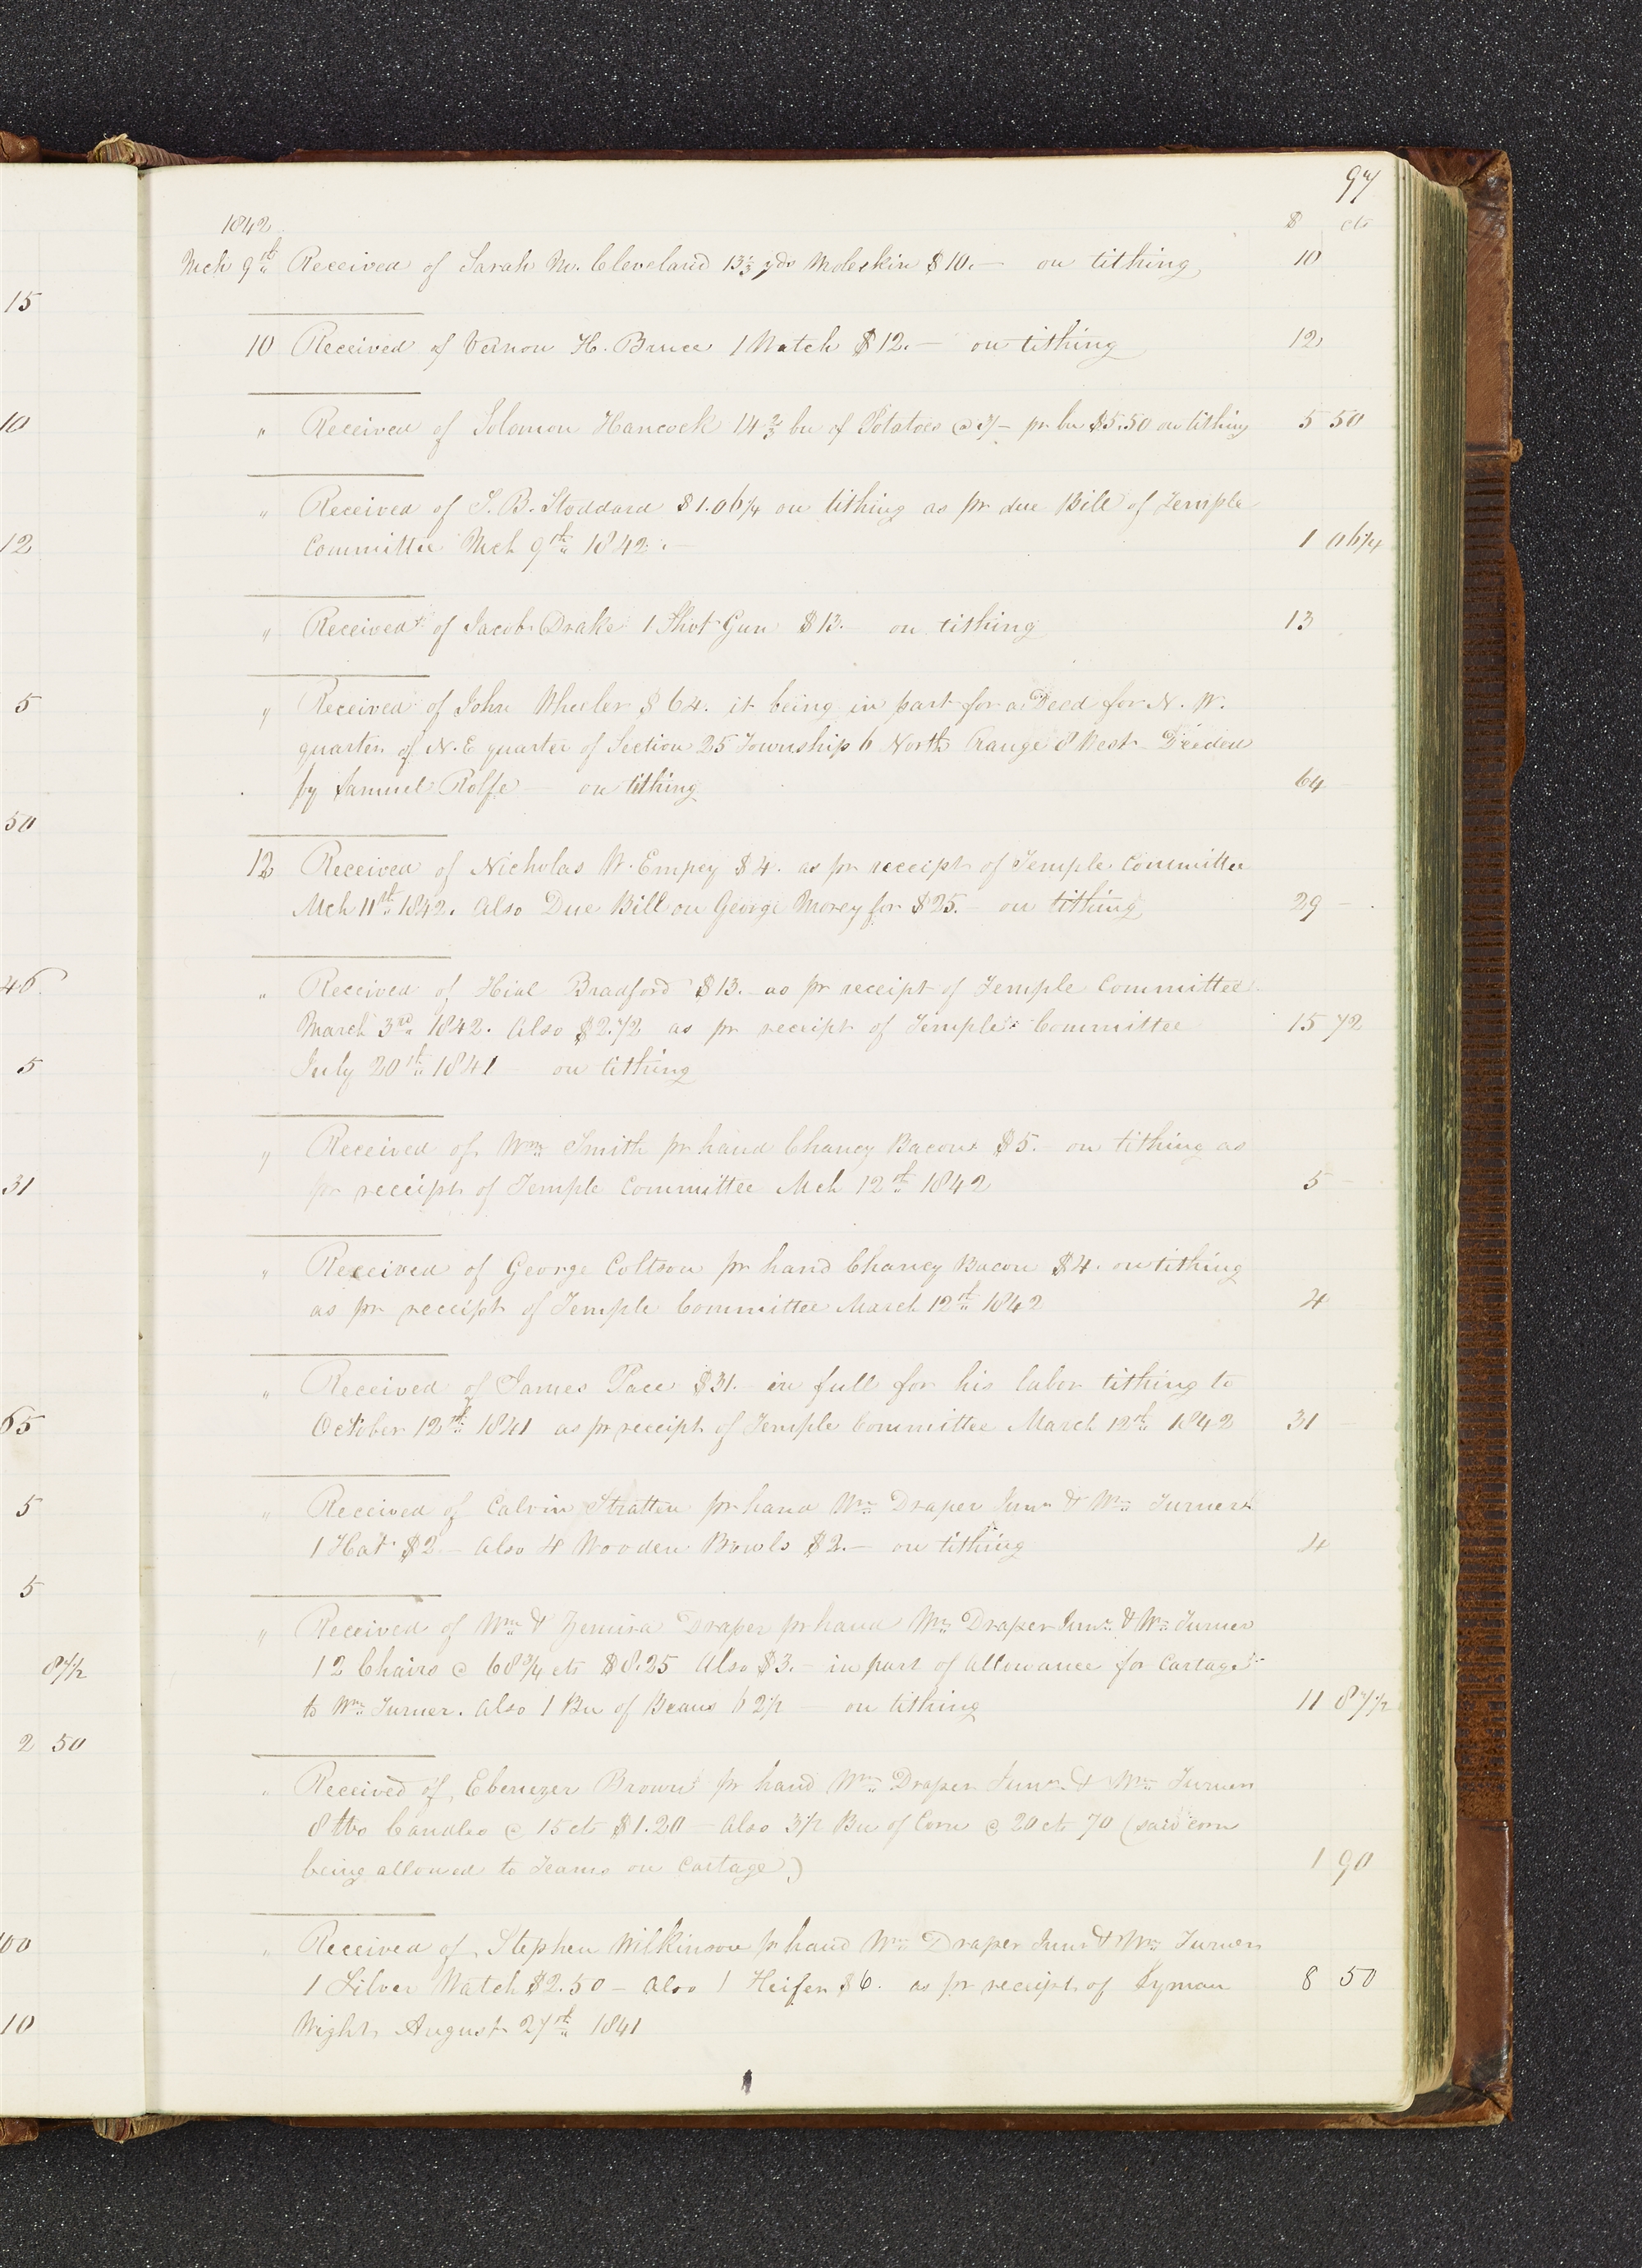 97
1842 $ cts
15
Mch 9th Received of Sarah M. Cleveland 13 1/3 yds Moleskin $10.— on tithing 10
10 Received of Vernon H. Bruce 1 Watch $12.— on tithing 12
10
" Received of Solomon Hancock 14 2/3 bu of Potatoes @ 3/– pr bu $5.50 on tithing 5 50
" Received of S. B. Stoddard $1.06 1/4 on tithing as pr due Bill of Temple
12
Committee Mch 9th 1842.— 1 06 1/4
" Received of Jacob Drake 1 Shot Gun $13. on tithing 13
5
" Received of John Wheeler $64. it being in part for a Deed for N. W.
quarter of N. E quarter of Section 25 Township 6 North Range 8 West Deeded
by Samuel Rolfe — on tithing 64
50
12 Received of Nicholas W. Empey $4. as pr receipt of Temple Committee
Mch 11th 1842. Also Due Bill on George Morey for $25.— on tithing 29 –
46
" Received of Hial Bradford $13. as pr receipt of Temple Committee
March 3rd 1842. Also $2.72 as pr receipt of Temple Committee 15 72
5
July 20th 1841 on tithing
" Received of Wm Smith pr hand Chancy Bacon $5. on tithing as
31
pr receipt of Temple Committee Mch 12th 1842 5 –
" Received of George Coltson pr hand Chancy Bacon $4. on tithing
as pr receipt of Temple Committee March 12th 1842 4
" Received of James Pace $31. in full for his labor tithing to
65
October 12th 1841 as pr receipt of Temple Committee March 12th 1842 31 –
5
" Received of Calvin Stratten pr hand Wm Draper Junr & Wm Turner
1 Hat $2 – Also 4 Wooden Bowls $2.— on tithing 4
5
" Received of Wm & Zemira Draper pr hand Wm Draper Junr & Wm Turner
8 1/2
12 Chairs @ 68 3/4 cts $8.25 Also $3.– in part of allowance for Cartage
to Wm Turner. Also 1 Bu of Beans 62 1/2 — on tithing 11 87 1/2
2 50
" Received of Ebenezer Brown pr hand Wm Draper Junr & Wm Turner
8 lbs Candles @ 15 cts $1.20 – Also 3 1/2 Bu of Corn @ 20 cts 70 (said corn
being allowed to Teams on Cartage) 1 90
100
" Received of Stephen Wilkinson pr hand Wm Draper Junr & Wm Turner
1 Silver Watch $2.50 – Also 1 Heifer $6. as pr receipt of Lyman 8 50
10
Wight August 27th 1841